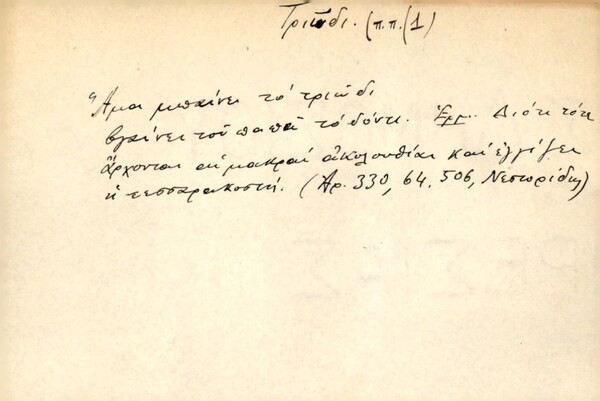 Τριῶδι. (π.π.(1)
Ἅμα μπαίνει τὸ τριῶδι
βγαίνει τοῦ παπᾶ τὸ δόντι. Ἑρμ. Διότι τότε
ἄρχονται αἱ μακραὶ ἀκολουθίαι καὶ ἐγγίζει
ἡ τεσσαρακοστή. (Ἀρ. 330, 64. 506, Νεστορίδης)